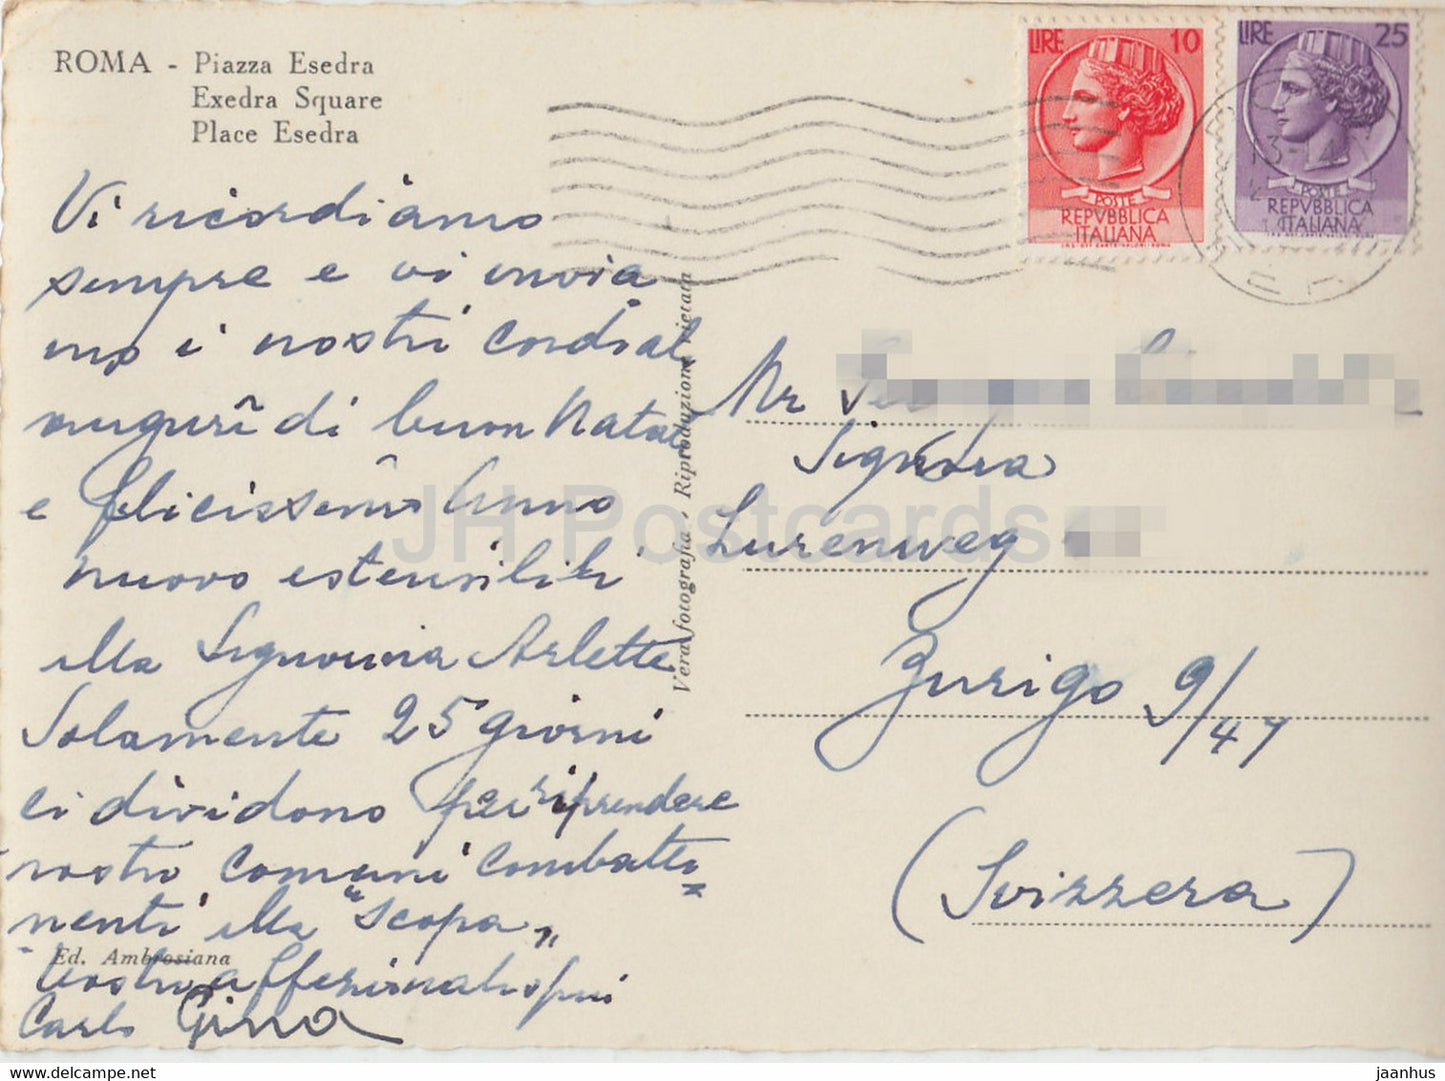 ROMA - Piazza Esedra
Exedra Square
Place Esedra
LIRE 10
POSTE
REPVBBLICA
ITALIANA
LIRE 25
POSTE
REPVBBLICA
ITALIANA
Vi ricordiamo
sempre e vi invia
mo i nostri cordial
auguri di buon Natal
e felicissimo Anno
nuovo estensibili
alla Signorina Arlette
Solamente 25 giorni
ci dividono per riprendere
nostri comuni combatti
menti alla "scopa"
Vostri affezionatissimi
Carlo Gina
Ed. Ambrosiana
Vera fotografia / Riproduzione vietata
Mr
Signora
Lurenweg
Zurigo 9/47
(Svizzera)
JH Postcards
www.delcampe.net
jaanhus